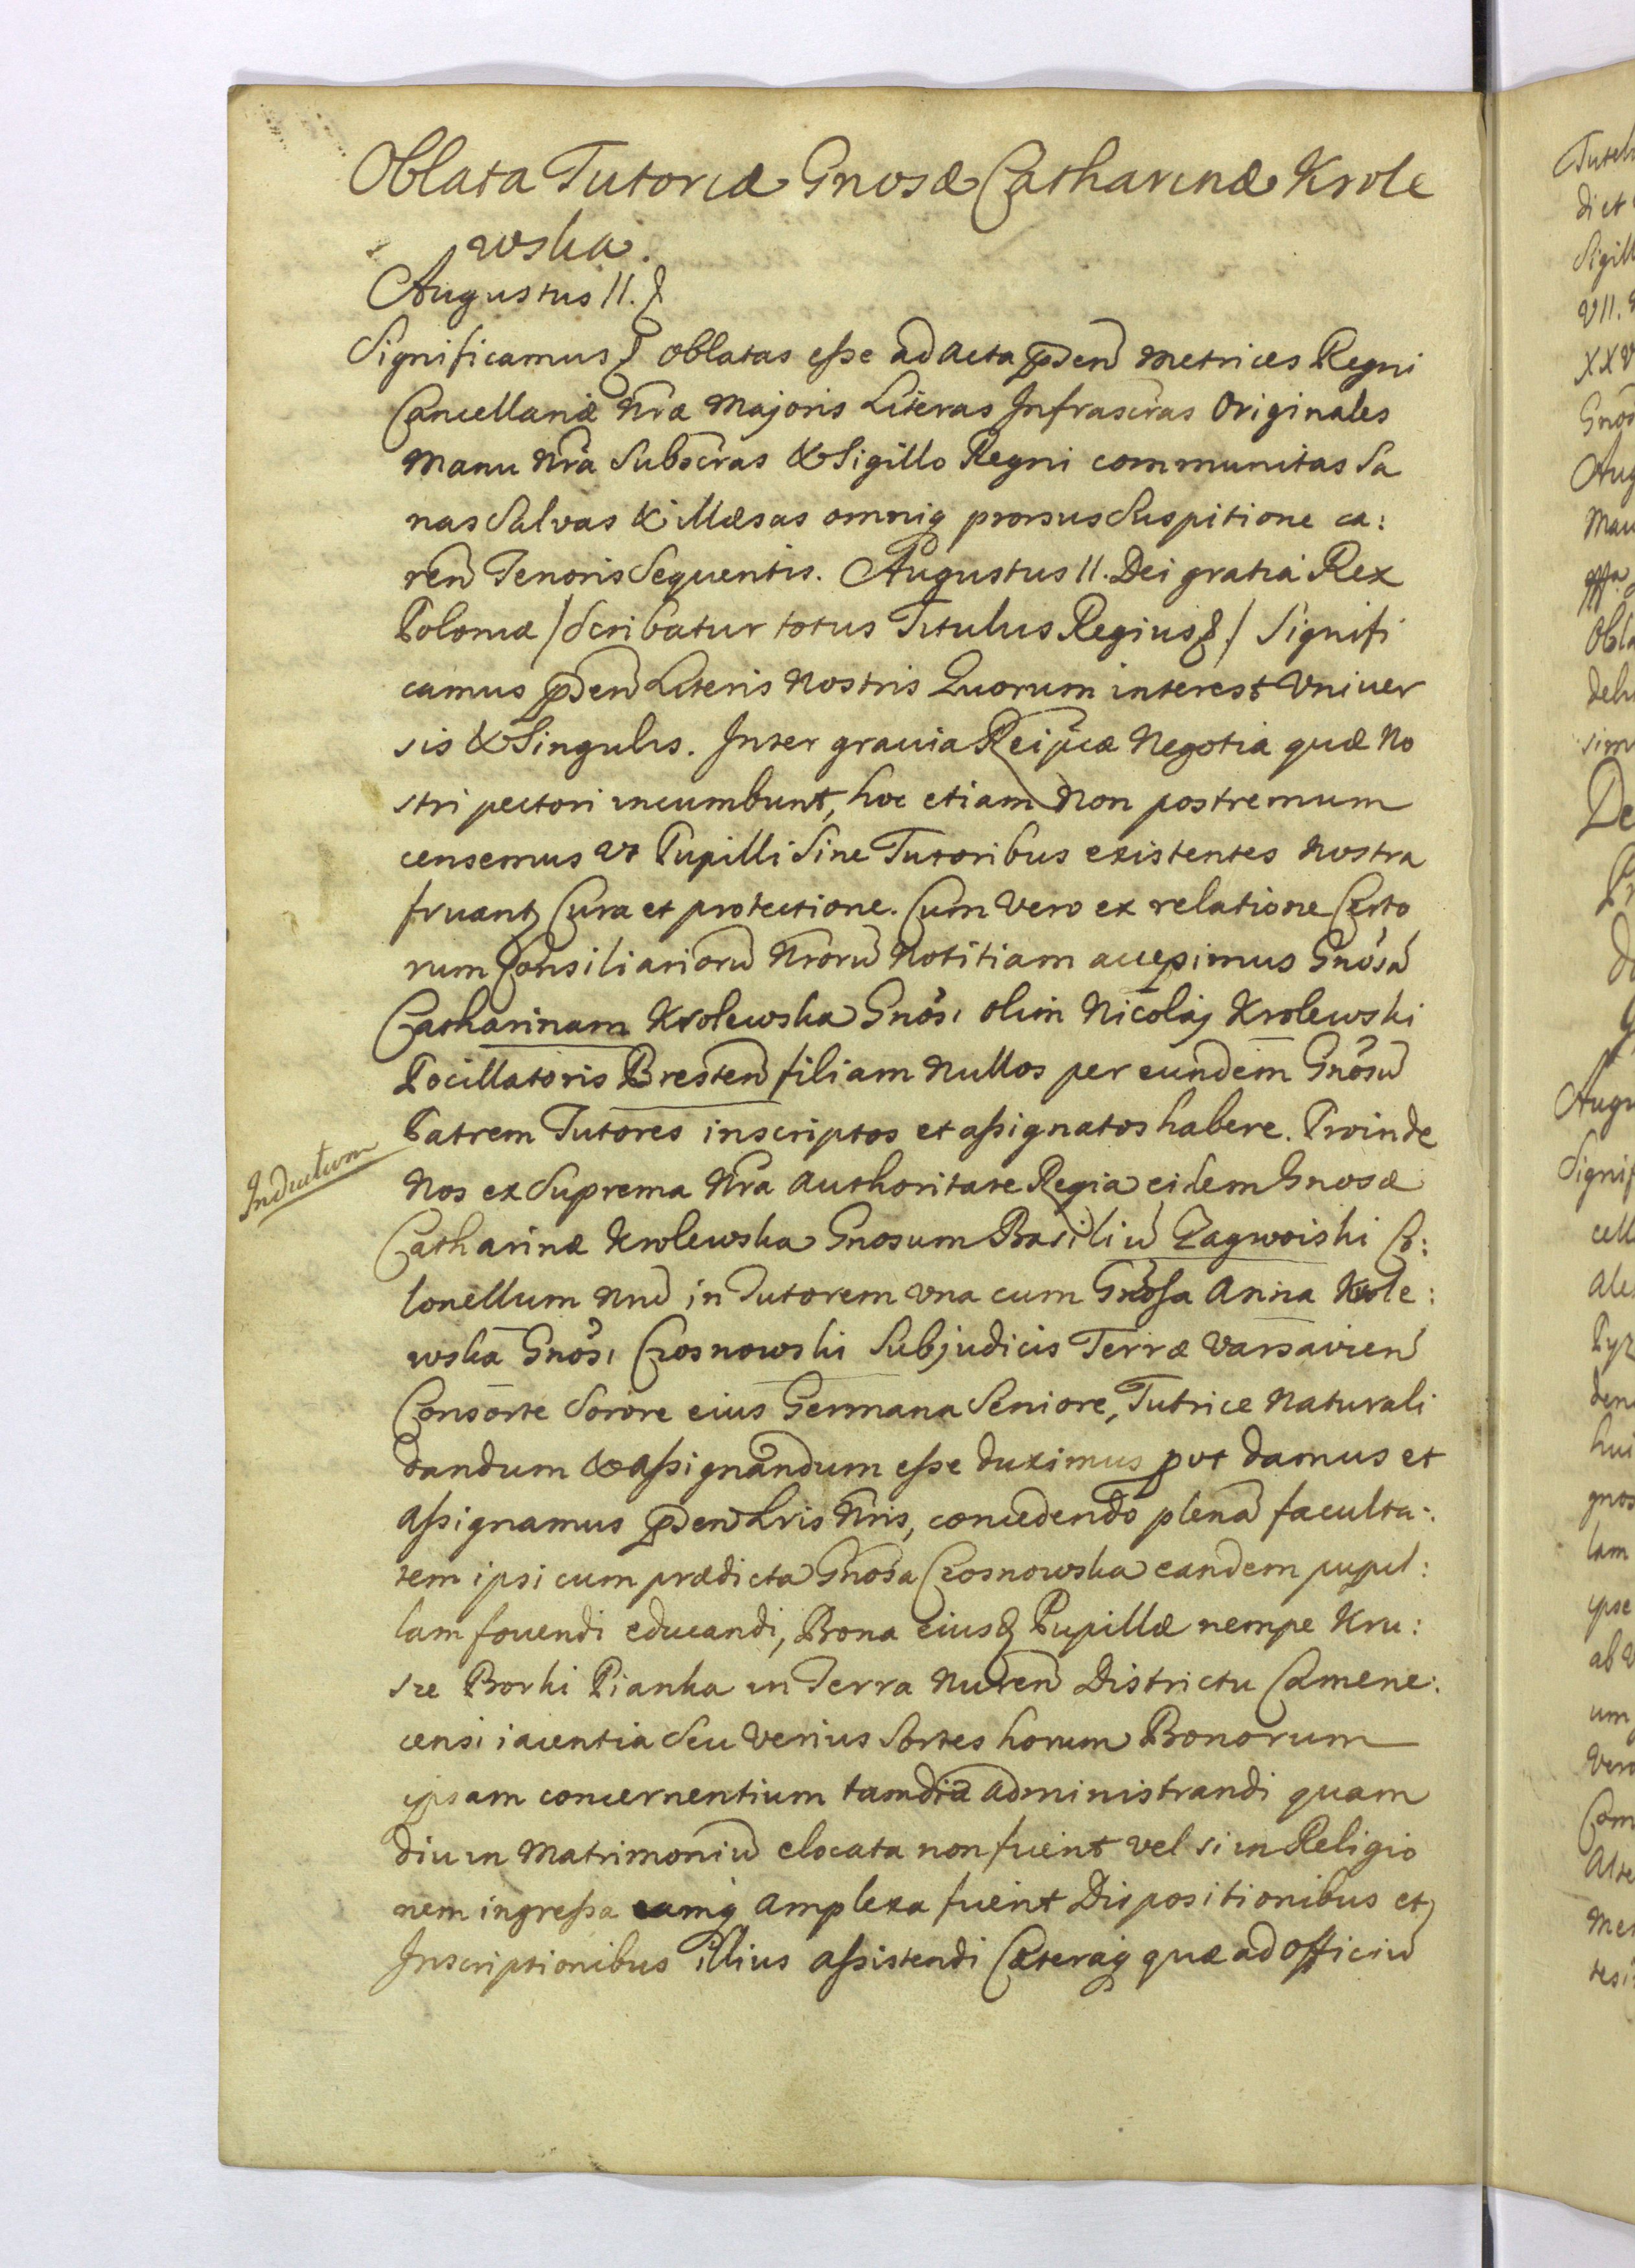 Oblata Tutoriæ Gnosæ Catharinæ Krole
wska.
Augustus II. &
Significamus & oblatas esse ad Acta pñden Metrices Regni
Cancellariæ Nræ Majoris Literas Infrascras Originales
Manu Nra Subscras & Sigillo Regni communitas Sa
nas Salvas & illæsas omniq prorsus Suspitione ca:
ren Tenoris Sequentis. Augustus II. Dei gratia Rex
Poloniæ / Scribatur totus Titulus Regius & / Signifi
camus pñden Literis Nostris Quorum interest Vniver
sis & Singulis. Inter gravia Reipcæ Negotia quæ No
stri pectori incumbunt, hoc etiam Non postremum
censemus vt Pupilli Sine Tutoribus existentes Nostra
fruant Cura et protectione. Cum Vero ex relatione Certo
rum Consiliarioru Nroru Notitiam accepimus Gnosa
Catharinam Krolewska Gnosi olim Nicolaj Krolewski
Pocillatoris Bresten filiam Nullos per eundem Gnosu
Patrem Tutores inscriptos et assignatos habere. Proinde
Indultum
Nos ex Suprema Nra Authoritate Regia eidem Gnosæ
Catharinæ Krolewska Gnosum Basiliu Zagwoiski Co:
lonellum Nru in Tutorem Vna cum Gnosa Anna Krole:
wska Gnosi Czosnowski Subjudicis Terræ Varsavien
Consorte Sorore eius Germana Seniore, Tutrice Naturali
dandum & assignandum esse duximus put damus et
Assignamus pñden Lris Nris, concedendo plena faculta:
tem ipsi cum prædicta Gnosa Czosnowska eandem pupil:
lam fovendi educandi, Bona eiusd Pupillæ nempe Kru:
sze Borki Pianka in Terra Nuren Districtu Camene:
censi iacentia Seu Verius Sortes horum Bonorum
ipsam concernentium tamdiu administrandi quam
diu in Matrimoniu elocata non fuerit vel si in Religio
nem ingressa eamq amplexa fuerit Dispositionibus et
Inscriptionibus illius assistendi Cæteraq quæ ad officiu